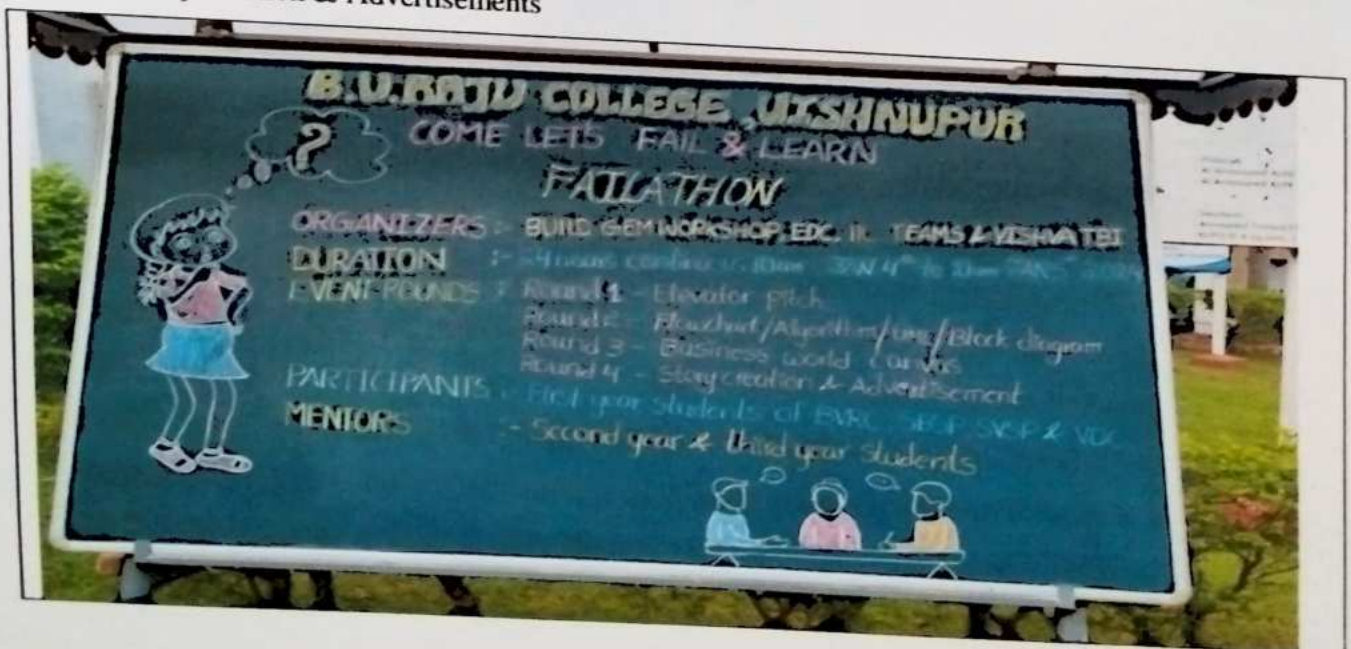 & Advertisements
B.V.RAJU COLLEGE, VISHNUPUR
?
COME LETS FAIL & LEARN
FAILATHON
ORGANIZERS : BUILD GEM WORKSHOP, EDC, TEAMS & VISHVA TBI
DURATION :- 24 hours 10am JAN 4th to 10am JAN
EVENT ROUNDS : Round 1 - Elevator pitch
Round 2 - Flowchart/Algorithm/ /Block diagram
Round 3 - Business world canvas
Round 4 - Story creation & Advertisement
PARTICIPANTS : First year students of BVRC, SBSP, SVCP & VDC
MENTORS :- Second year & third year students